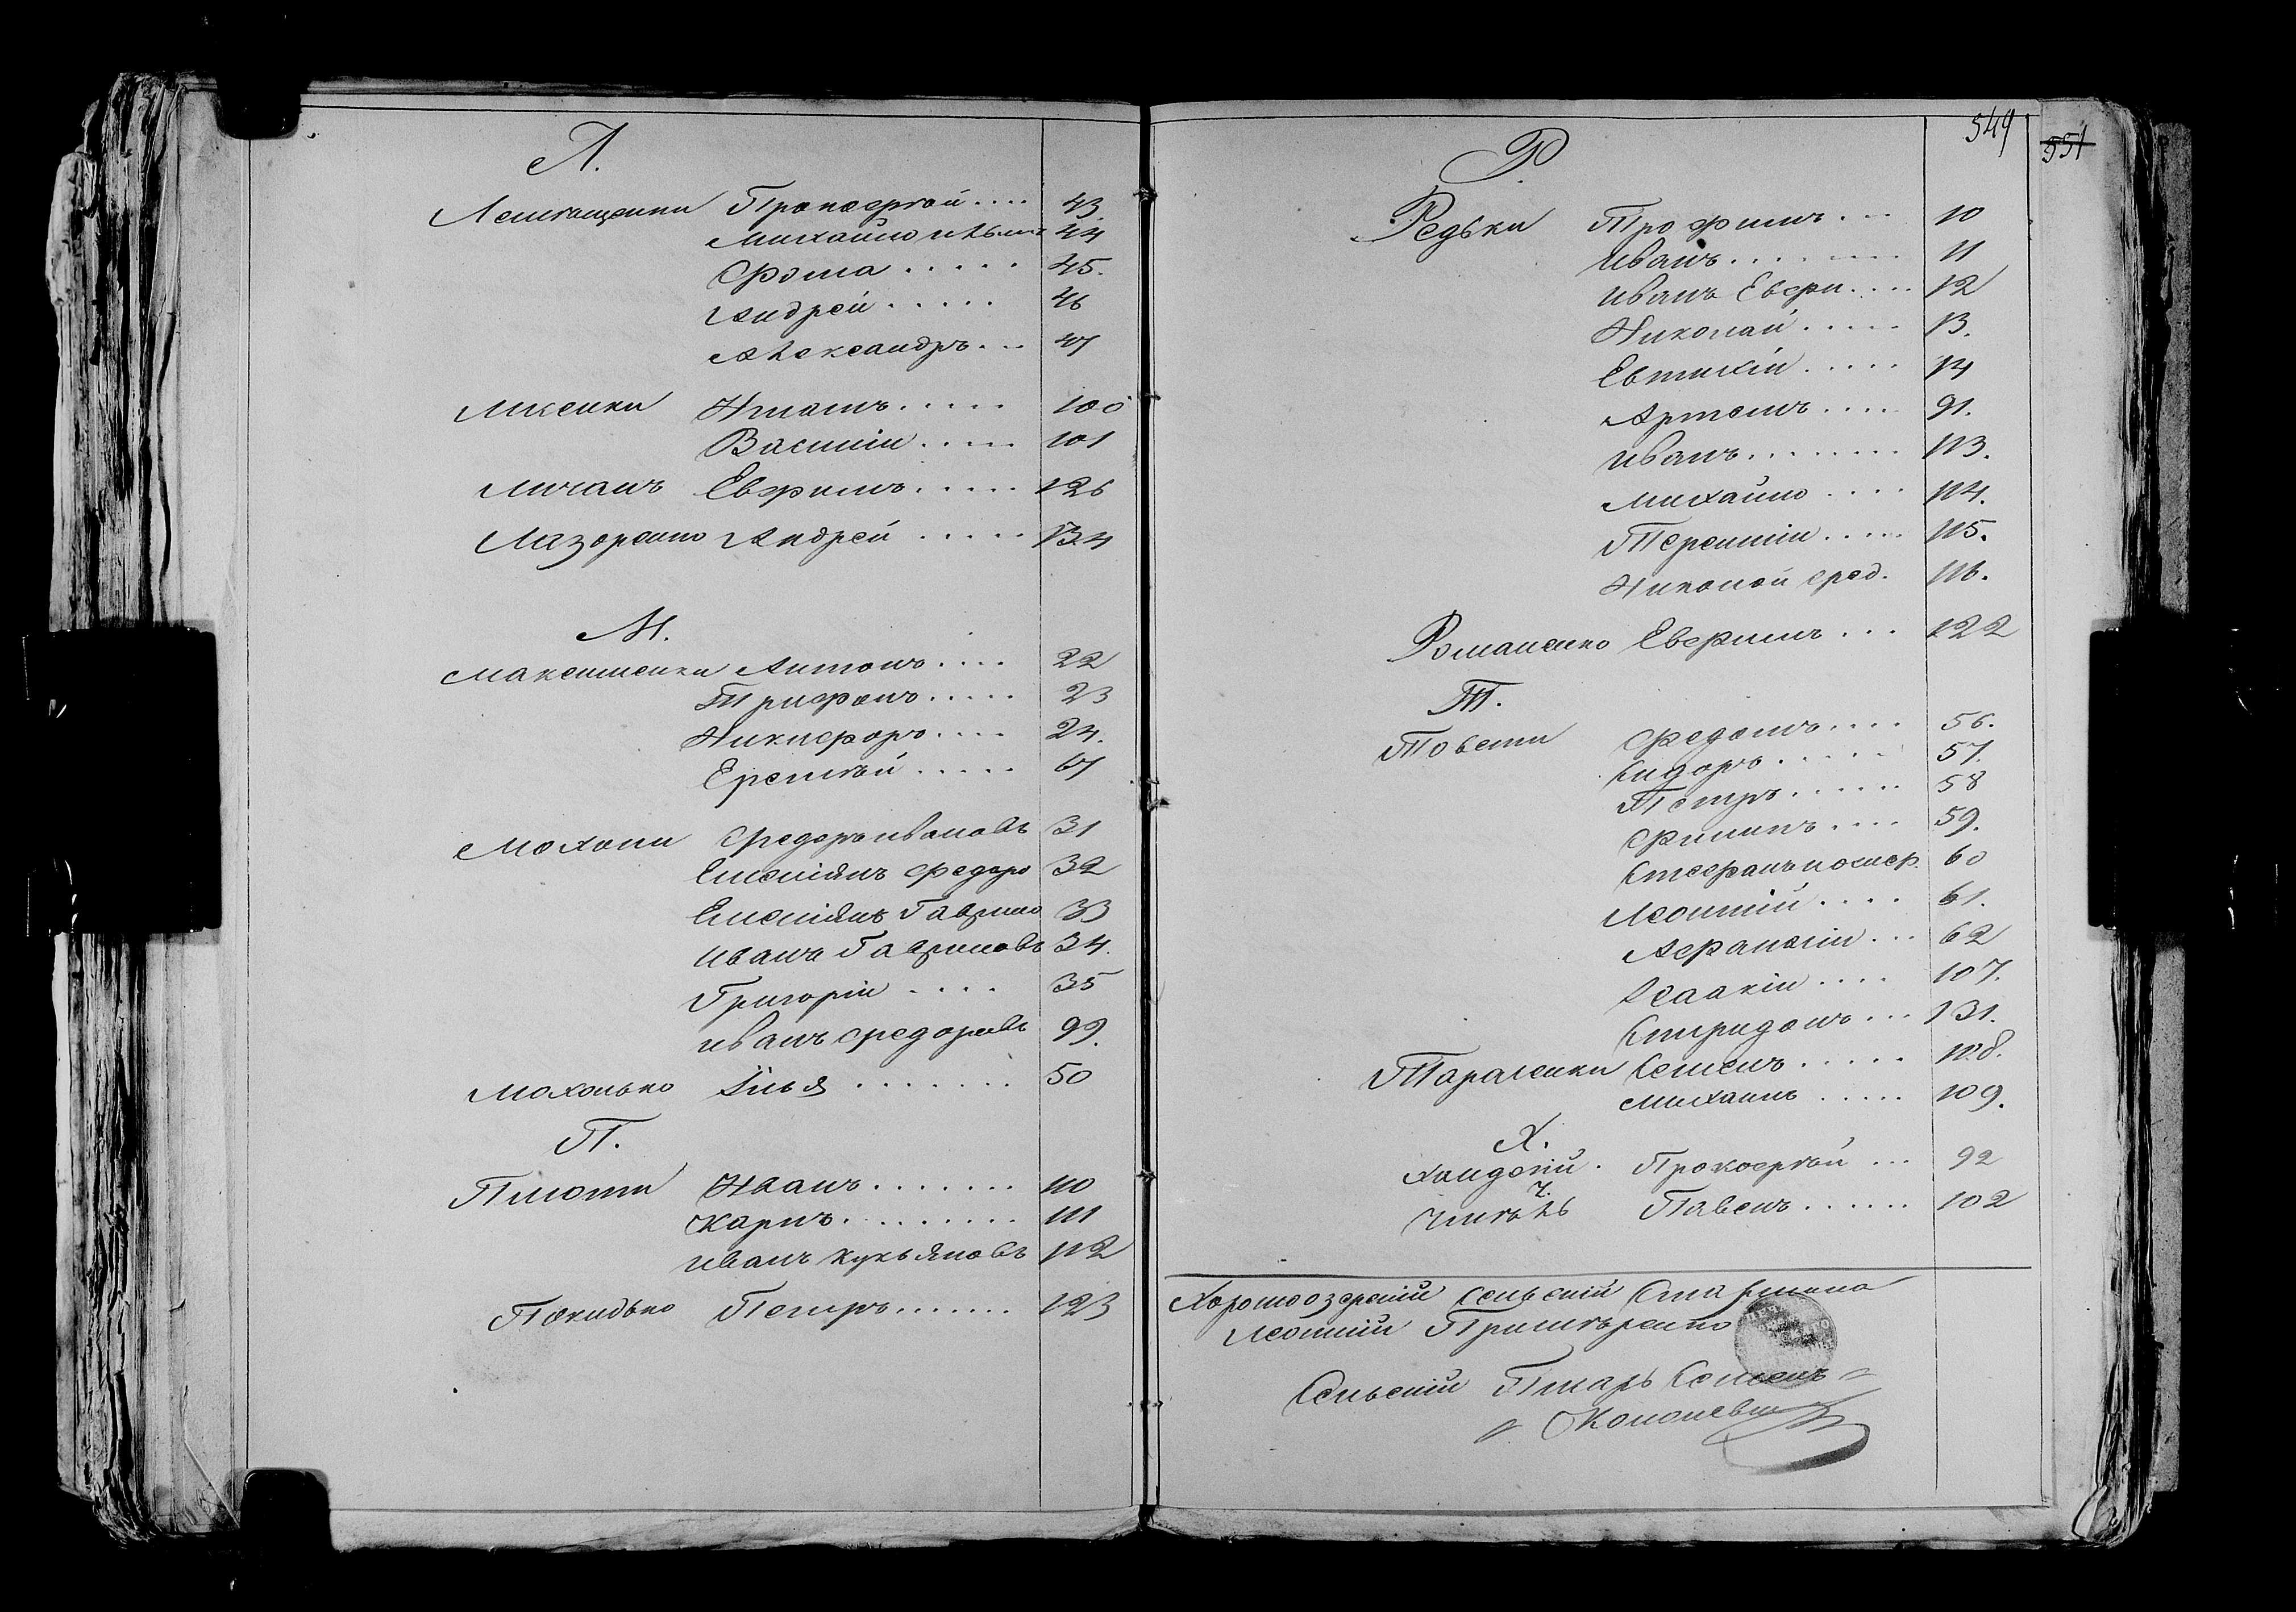 Л.
Лемѣщенки Прокофѣй .... 43.
Михайло Ильинъ 44
Фома ..... 45.
Андрей ..... 46
Александръ ... 47
Лисенки Игнатъ ..... 100
Василій ..... 101
Личанъ Евфимъ ..... 126
Лазоренко Андрей ..... 134
М.
Максименки Антонъ .... 22
Трифонъ ..... 23
Никифоръ .... 24.
Еремѣй ..... 67
Мохони Федоръ Ивановъ 31
Емеліянъ Федоро 32
Емеліянъ Гаврило 33
Иванъ Гавриловъ 34.
Григорій .... 35
Иванъ Федоровъ 99.
Мохонько Илья ....... 50
П.
Плюти Иванъ ....... 110
Карпъ ......... 111
Иванъ Лукьяновъ 112
Покидько Петръ ....... 123
549
551
Р.
Редьки Трофимъ ... 10
Иванъ ........ 11
Иванъ Евфи .... 12
Николай ..... 13.
Евтихій ..... 14
Артемъ .... 91.
Иванъ ........ 113.
Михайло .... 114.
Терентій ..... 115.
Николай Фед. 116.
Романенко Евфимъ ... 122
Т.
Товсти Федотъ .... 56.
Сидоръ ...... 57.
Петръ ...... 58
Филипъ .... 59.
Стефанъ 60
Леонтій .... 61.
Афанасій ... 62
Исаакій .... 107.
Спиридонъ ... 131.
Тарасенки Семенъ ..... 108.
Михаилъ ..... 109.
Х.
Хандогій . Прокофѣй ... 92
Ч.
Павелъ ...... 102
Хорошоозерскій Сельскій Старшина
Леонтій
Сельскій Писарь Семенъ
Кононевич